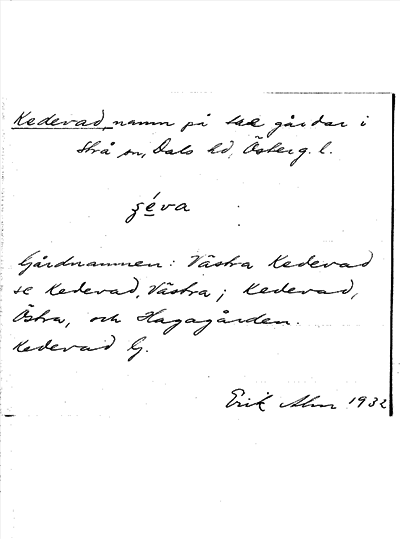 Kedevad, namn på tre gårdar i
Strå sn, Dals hd, Österg. l.
ʒéva
Gårdnamnen: Västra Kedevad
se Kedevad, Västra; Kedevad,
Östra, och Hagagården.
Kedevad G.
Erik Alm 1932